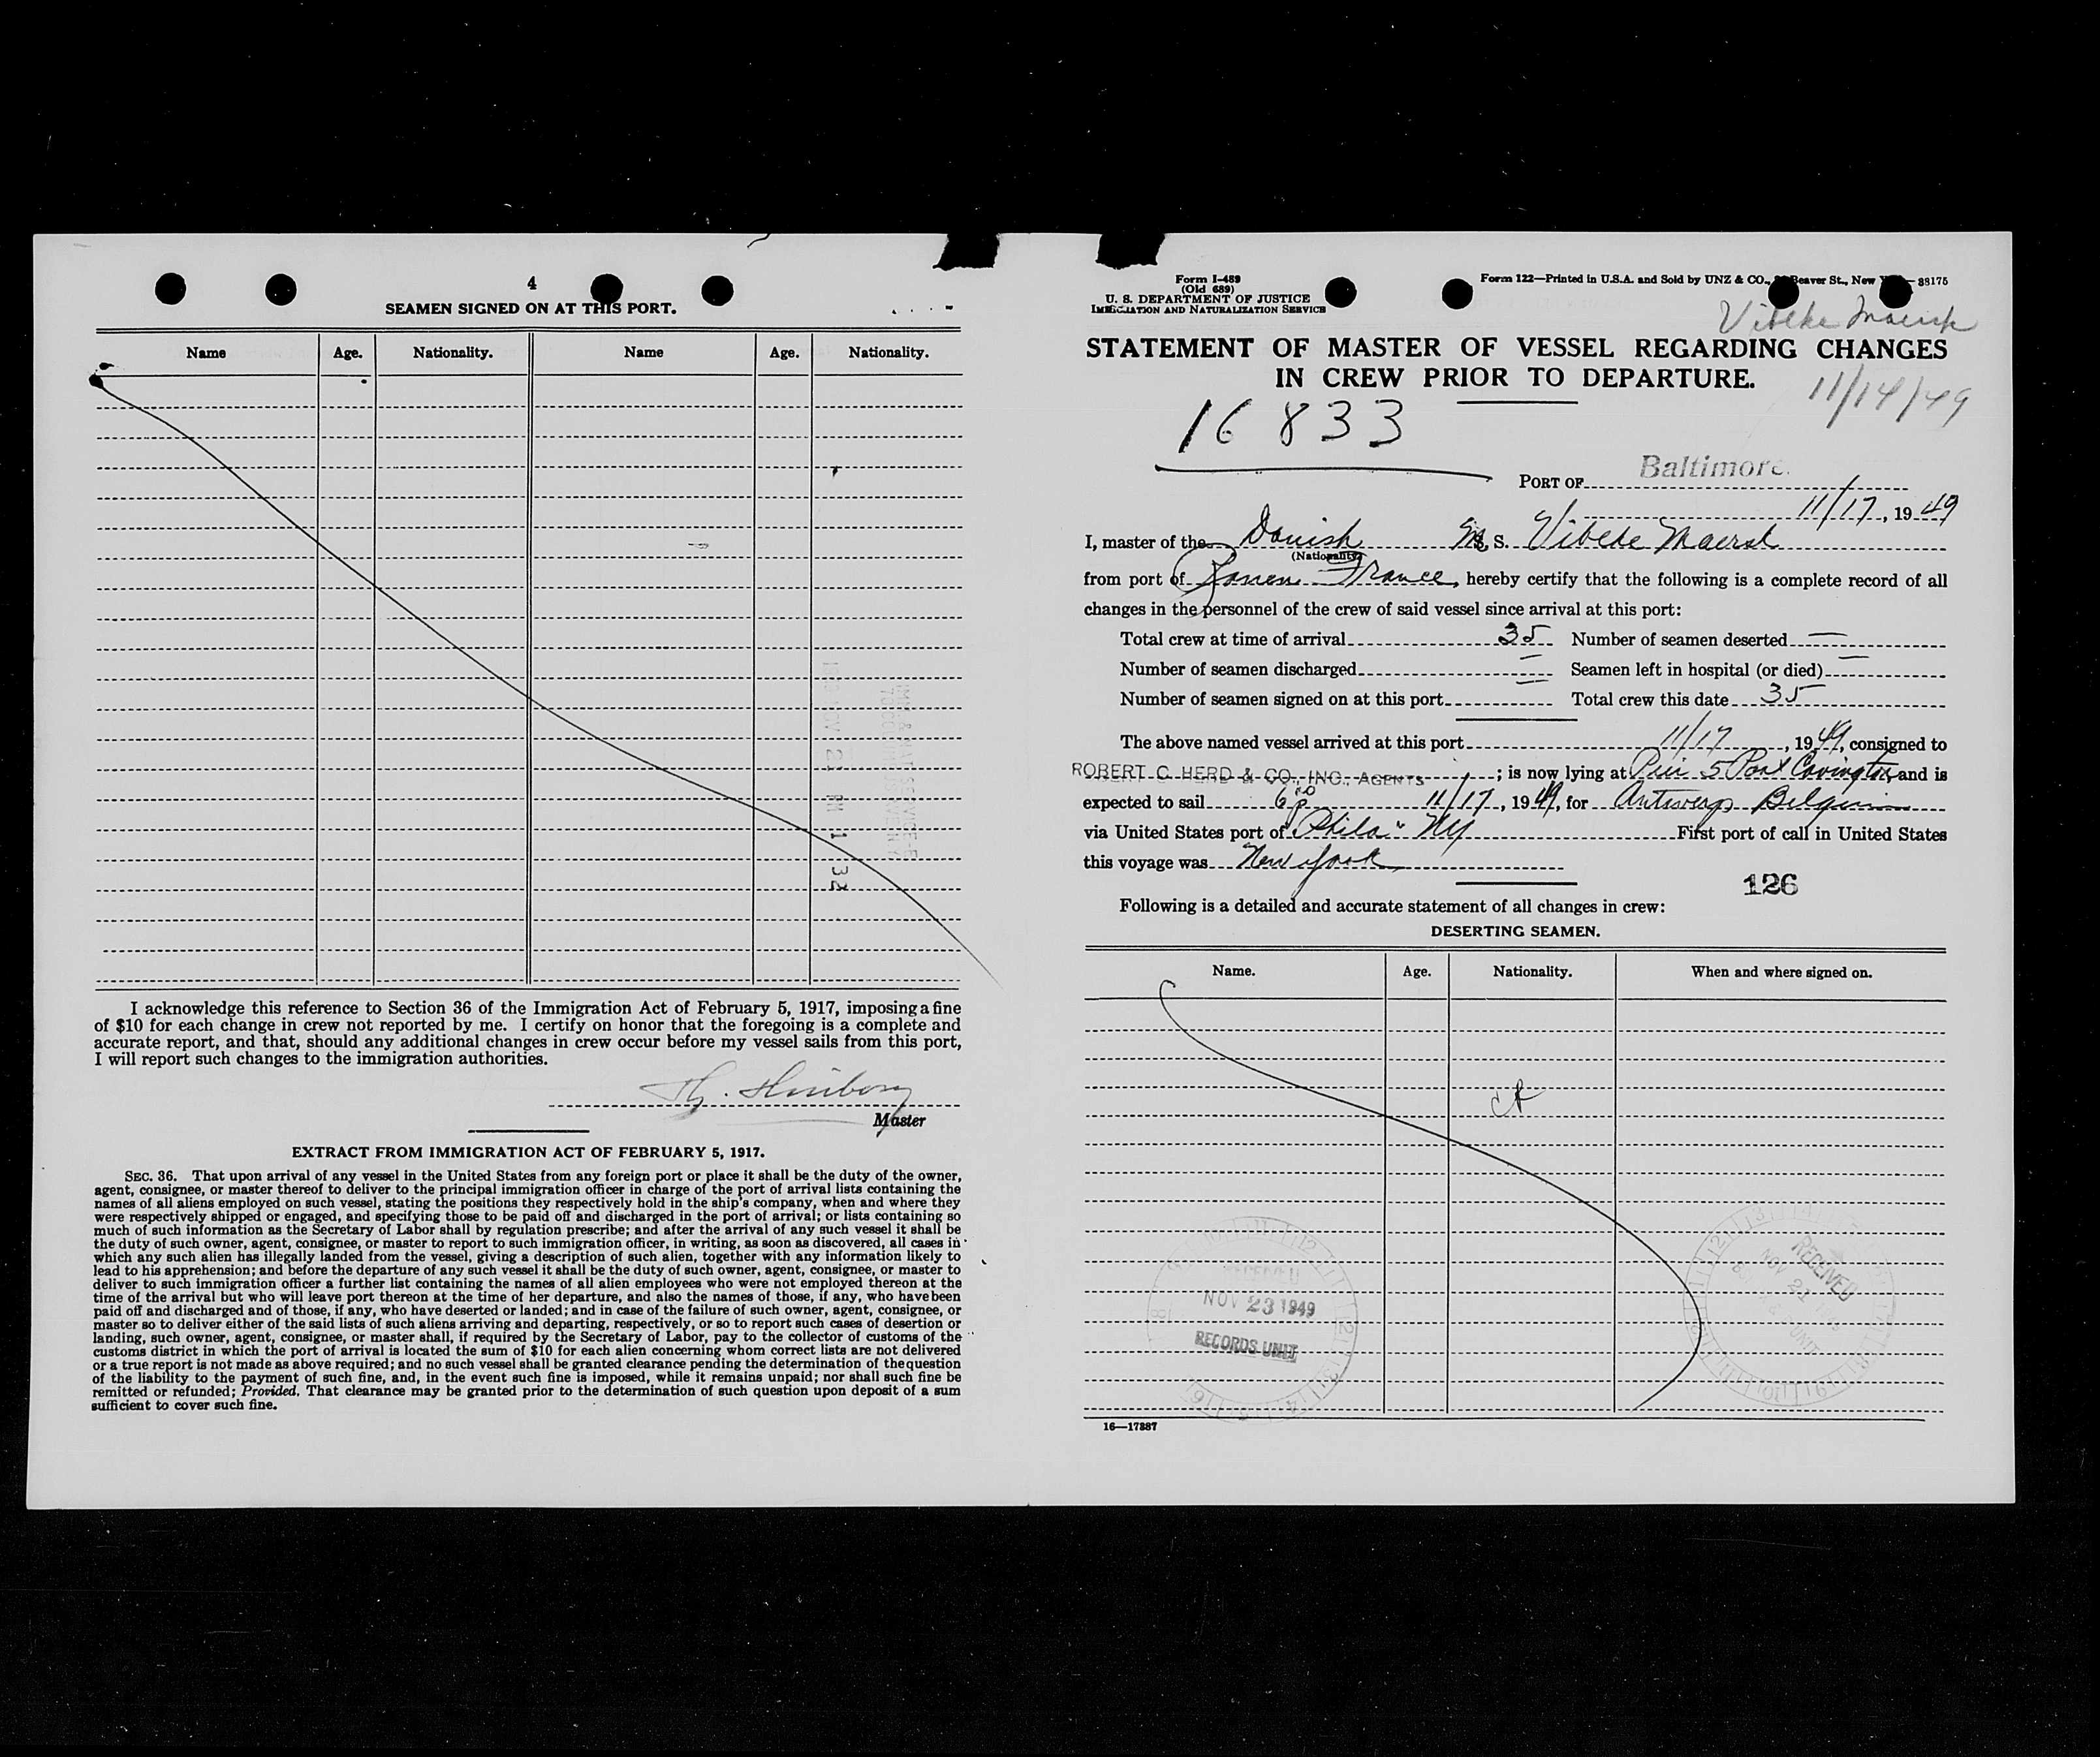 4
SEAMEN SIGNED ON AT THIS PORT.
Name Age. Nationality. Name Age. Nationality.
I acknowledge this reference to Section 36 of the Immigration Act of February 5, 1917, imposing a fine
of $10 for each change in crew not reported by me. I certify on honor that the foregoing is a complete and
accurate report, and that, should any additional changes in crew occur before my vessel sails from this port,
I will report such changes to the immigration authorities.
Master
EXTRACT FROM IMMIGRATION ACT OF FEBRUARY 5, 1917.
SEC. 36. That upon arrival of any vessel in the United States from any foreign port or place it shall be the duty of the owner,
agent, consignee, or master thereof to deliver to the principal immigration officer in charge of the port of arrival lists containing the
names of all aliens employed on such vessel, stating the positions they respectively hold in the ship's company, when and where they
were respectively shipped or engaged, and specifying those to be paid off and discharged in the port of arrival; or lists containing so
much of such information as the Secretary of Labor shall by regulation prescribe; and after the arrival of any such vessel it shall be
the duty of such owner, agent, consignee, or master to report to such immigration officer, in writing, as soon as discovered, all cases in
which any such alien has illegally landed from the vessel, giving a description of such alien, together with any information likely to
lead to his apprehension; and before the departure of any such vessel it shall be the duty of such owner, agent, consignee, or master to
deliver to such immigration officer a further list containing the names of all alien employees who were not employed thereon at the
time of the arrival but who will leave port thereon at the time of her departure, and also the names of those, if any, who have been
paid off and discharged and of those, if any, who have deserted or landed; and in case of the failure of such owner, agent, consignee, or
master so to deliver either of the said lists of such aliens arriving and departing, respectively, or so to report such cases of desertion or
landing, such owner, agent, consignee, or master shall, if required by the Secretary of Labor, pay to the collector of customs of the
customs district in which the port of arrival is located the sum of $10 for each alien concerning whom correct lists are not delivered
or a true report is not made as above required; and no such vessel shall be granted clearance pending the determination of the question
of the liability to the payment of such fine, and, in the event such fine is imposed, while it remains unpaid; nor shall such fine be
remitted or refunded; Provided, That clearance may be granted prior to the determination of such question upon deposit of a sum
sufficient to cover such fine.
Form I-489
(Old 689)
U. S. DEPARTMENT OF JUSTICE
IMMIGRATION AND NATURALIZATION SERVICE
Form 122—Printed in U.S.A. and Sold by UNZ & CO., Beaver St., New 88175
Vibeke Maersk
STATEMENT OF MASTER OF VESSEL REGARDING CHANGES
IN CREW PRIOR TO DEPARTURE.
11/14/49
16833
PORT OF Baltimore
11/17, 1949
I, master of the Danish M. S. Vibeke Maersk
(Nationality)
from port of Rouen France, hereby certify that the following is a complete record of all
changes in the personnel of the crew of said vessel since arrival at this port:
Total crew at time of arrival 35 Number of seamen deserted —
Number of seamen discharged — Seamen left in hospital (or died) —
Number of seamen signed on at this port — Total crew this date 35
The above named vessel arrived at this port 11/17, 1949, consigned to
ROBERT C. HERD & CO., INC., AGENTS; is now lying at Pier 5 Port Covington and is
expected to sail 6 p 11/17, 1949, for Antwerp Belgium
via United States port of Phila NY First port of call in United States
this voyage was New York
126
Following is a detailed and accurate statement of all changes in crew:
DESERTING SEAMEN.
Name. Age. Nationality. When and where signed on.
RECEIVED
NOV 23 1949
RECORDS UNIT
RECEIVED
NOV 21
UNIT
16—17887